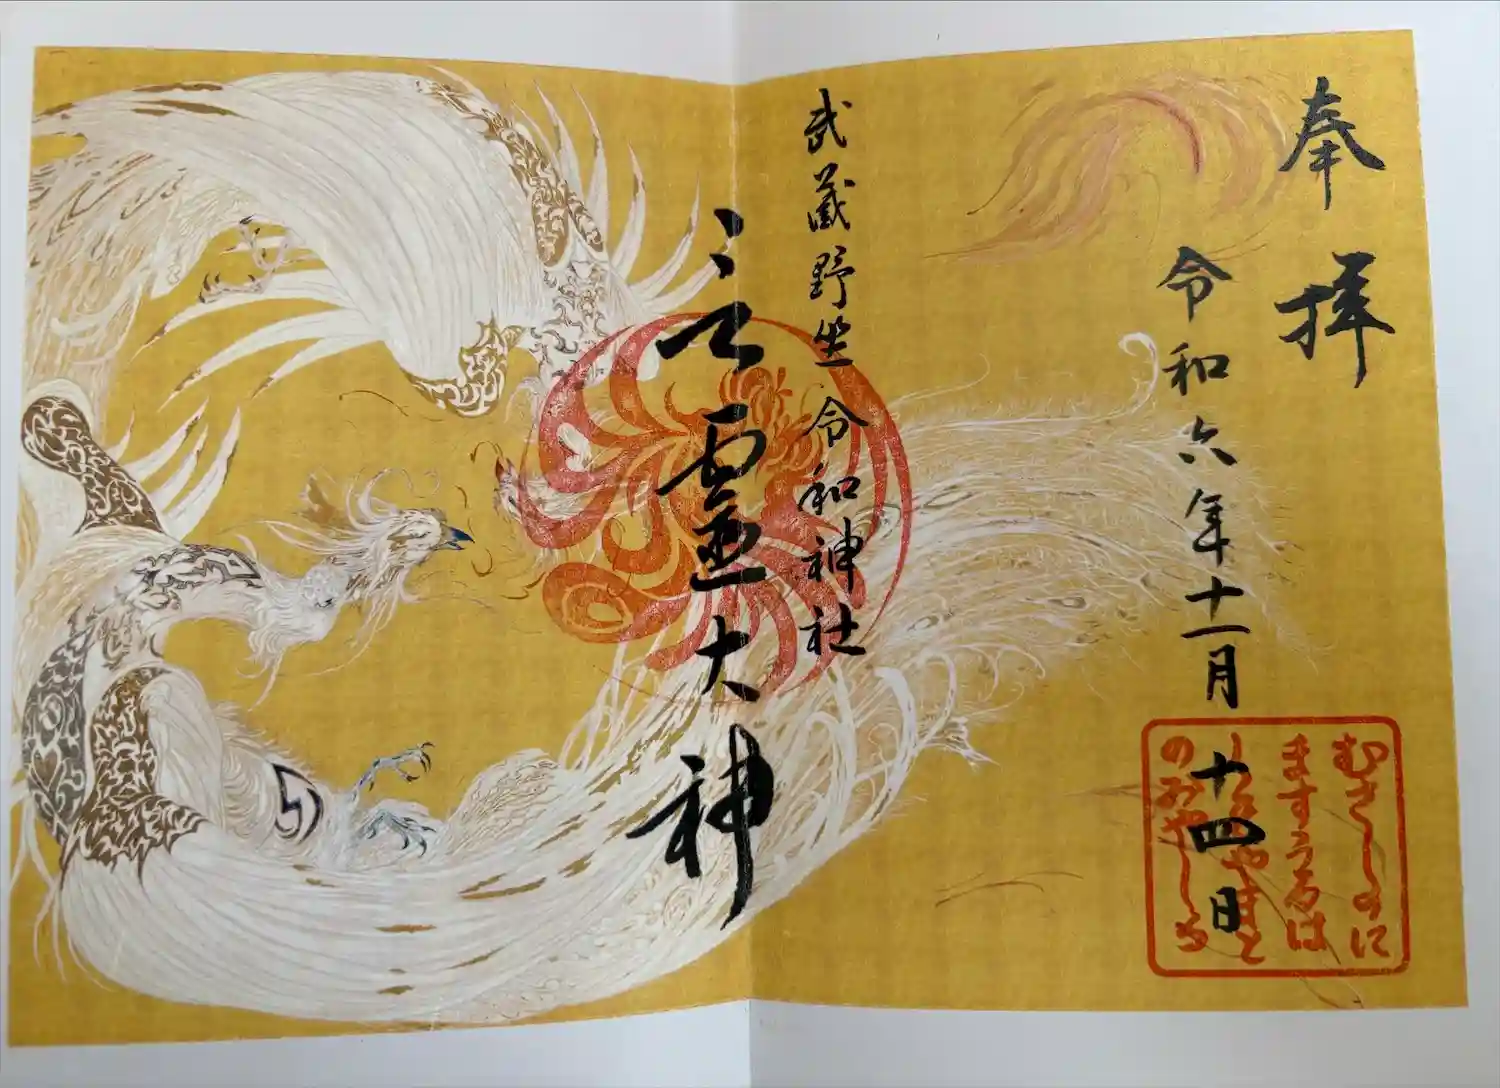 奉拝
令和六年十一月十四日
武蔵野坐令和神社
言靈大神
むさしのに
ますうるは
しきやまと
のみやしろ